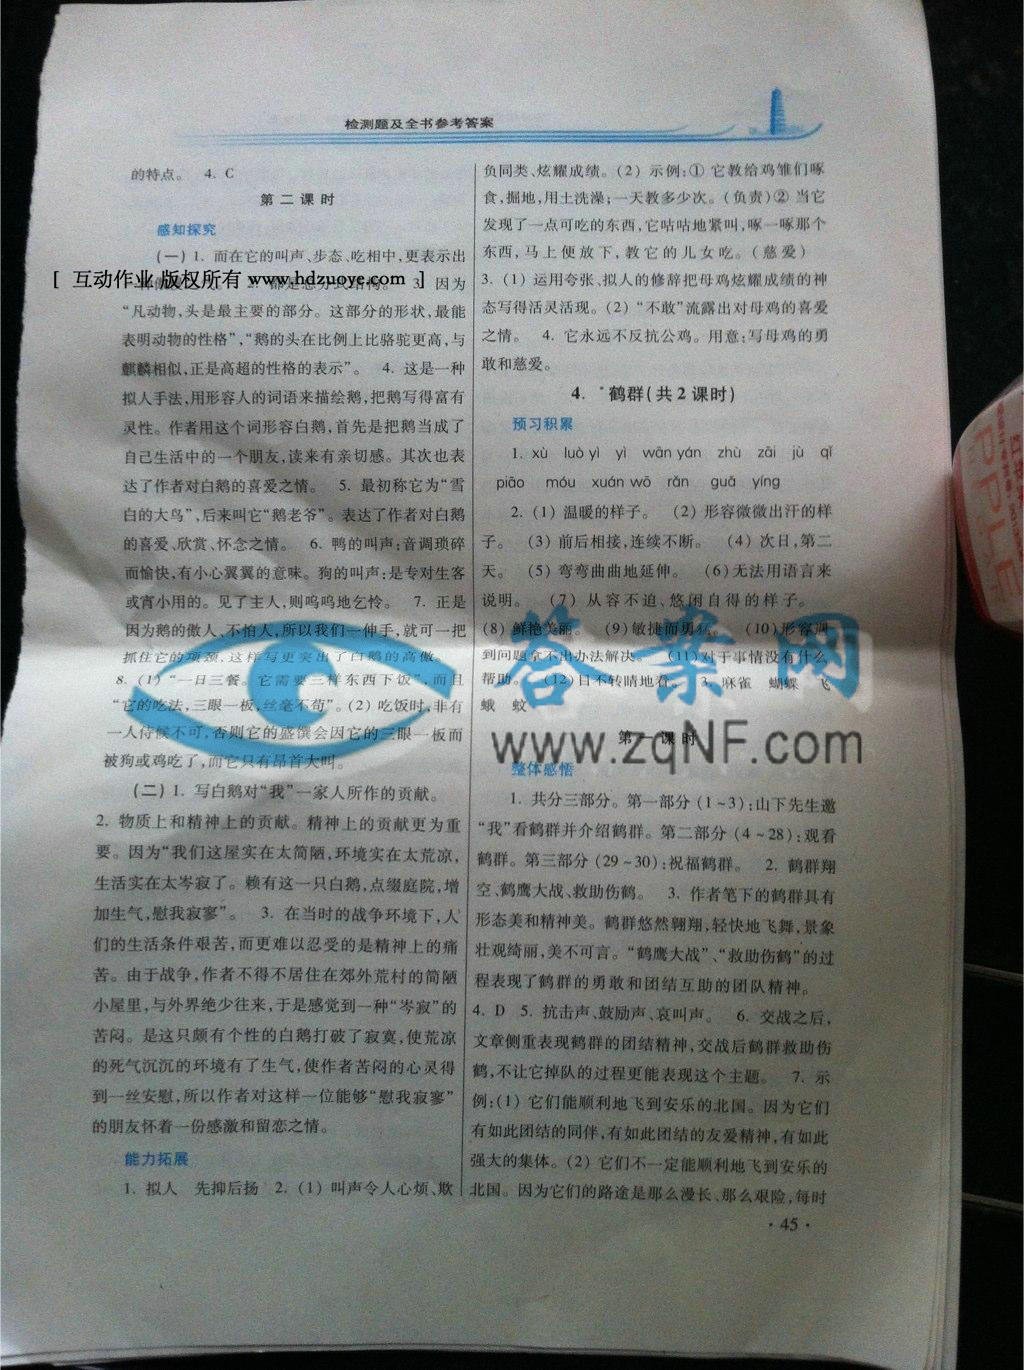 检测题及全书参考答案
的特点。 4. C
第二课时
感知探究
(一) 1. 而在它的叫声、步态、吃相中,更表示出
[ 互动作业 版权所有 www.hdzuoye.com ]
3. 因为
“凡动物,头是最主要的部分。这部分的形状,最能
表明动物的性格”,“鹅的头在比例上比骆驼更高,与
麒麟相似,正是高超的性格的表示”。 4. 这是一种
拟人手法,用形容人的词语来描绘鹅,把鹅写得富有
灵性。作者用这个词形容白鹅,首先是把鹅当成了
自己生活中的一个朋友,读来有亲切感。其次也表
达了作者对白鹅的喜爱之情。 5. 最初称它为“雪
白的大鸟”,后来叫它“鹅老爷”。表达了作者对白鹅
的喜爱、欣赏、怀念之情。 6. 鸭的叫声:音调琐碎
而愉快,有小心翼翼的意味。狗的叫声:是专对生客
或宵小用的。见了主人,则呜呜地乞怜。 7. 正是
因为鹅的傲人、不怕人,所以我们一伸手,就可一把
抓住它的项颈,这样写更突出了白鹅的高傲。
8. (1) “一日三餐。它需要三样东西下饭”,而且
“它的吃法,三眼一板,丝毫不苟”。(2) 吃饭时,非有
一人侍候不可,否则它的盛馔会因它的三眼一板而
被狗或鸡吃了,而它只有昂首大叫。
(二) 1. 写白鹅对“我”一家人所作的贡献。
2. 物质上和精神上的贡献。精神上的贡献更为重
要。因为“我们这屋实在太简陋,环境实在太荒凉,
生活实在太岑寂了。赖有这一只白鹅,点缀庭院,增
加生气,慰我寂寥”。 3. 在当时的战争环境下,人
们的生活条件艰苦,而更难以忍受的是精神上的痛
苦。由于战争,作者不得不居住在郊外荒村的简陋
小屋里,与外界绝少往来,于是感觉到一种“岑寂”的
苦闷。是这只颇有个性的白鹅打破了寂寞,使荒凉
的死气沉沉的环境有了生气,使作者苦闷的心灵得
到一丝安慰,所以作者对这样一位能够“慰我寂寥”
的朋友怀着一份感激和留恋之情。
能力拓展
1. 拟人 先抑后扬 2. (1) 叫声令人心烦、欺
负同类、炫耀成绩。(2) 示例:① 它教给鸡雏们啄
食,掘地,用土洗澡;一天教多少次。(负责)② 当它
发现了一点可吃的东西,它咕咕地紧叫,啄一啄那个
东西,马上便放下,教它的儿女吃。(慈爱)
3. (1) 运用夸张、拟人的修辞把母鸡炫耀成绩的神
态写得活灵活现。(2) “不敢”流露出对母鸡的喜爱
之情。 4. 它永远不反抗公鸡。用意:写母鸡的勇
敢和慈爱。
4. *鹤群(共2课时)
预习积累
1. xù luò yì yì wān yán zhù zāi jù qǐ
piāo móu xuán wō rǎn guā yíng
2. (1) 温暖的样子。 (2) 形容微微出汗的样
子。 (3) 前后相接,连续不断。 (4) 次日,第二
天。 (5) 弯弯曲曲地延伸。 (6)无法用语言来
说明。 (7) 从容不迫、悠闲自得的样子。
(8) 鲜艳美丽。 (9) 敏捷而勇猛。 (10) 形容遇
到问题拿不出办法解决。 (11) 对于事情没有什么
帮助。 (12) 目不转睛地看。 3. 麻雀 蝴蝶 飞
蛾 蚊
答案网
www.zqNF.com
第一课时
整体感悟
1. 共分三部分。第一部分 (1~3):山下先生邀
“我”看鹤群并介绍鹤群。第二部分 (4~28):观看
鹤群。第三部分 (29~30):祝福鹤群。 2. 鹤群翔
空、鹤鹰大战、救助伤鹤。 3. 作者笔下的鹤群具有
形态美和精神美。鹤群悠然翱翔,轻快地飞舞,景象
壮观绮丽,美不可言。“鹤鹰大战”、“救助伤鹤”的过
程表现了鹤群的勇敢和团结互助的团队精神。
4. D 5. 抗击声、鼓励声、哀叫声。 6. 交战之后,
文章侧重表现鹤群的团结精神,交战后鹤群救助伤
鹤,不让它掉队的过程更能表现这个主题。 7. 示
例:(1) 它们能顺利地飞到安乐的北国。因为它们
有如此团结的同伴,有如此团结的友爱精神,有如此
强大的集体。(2) 它们不一定能顺利地飞到安乐的
北国。因为它们的路途是那么漫长、那么艰险,每时
· 45 ·